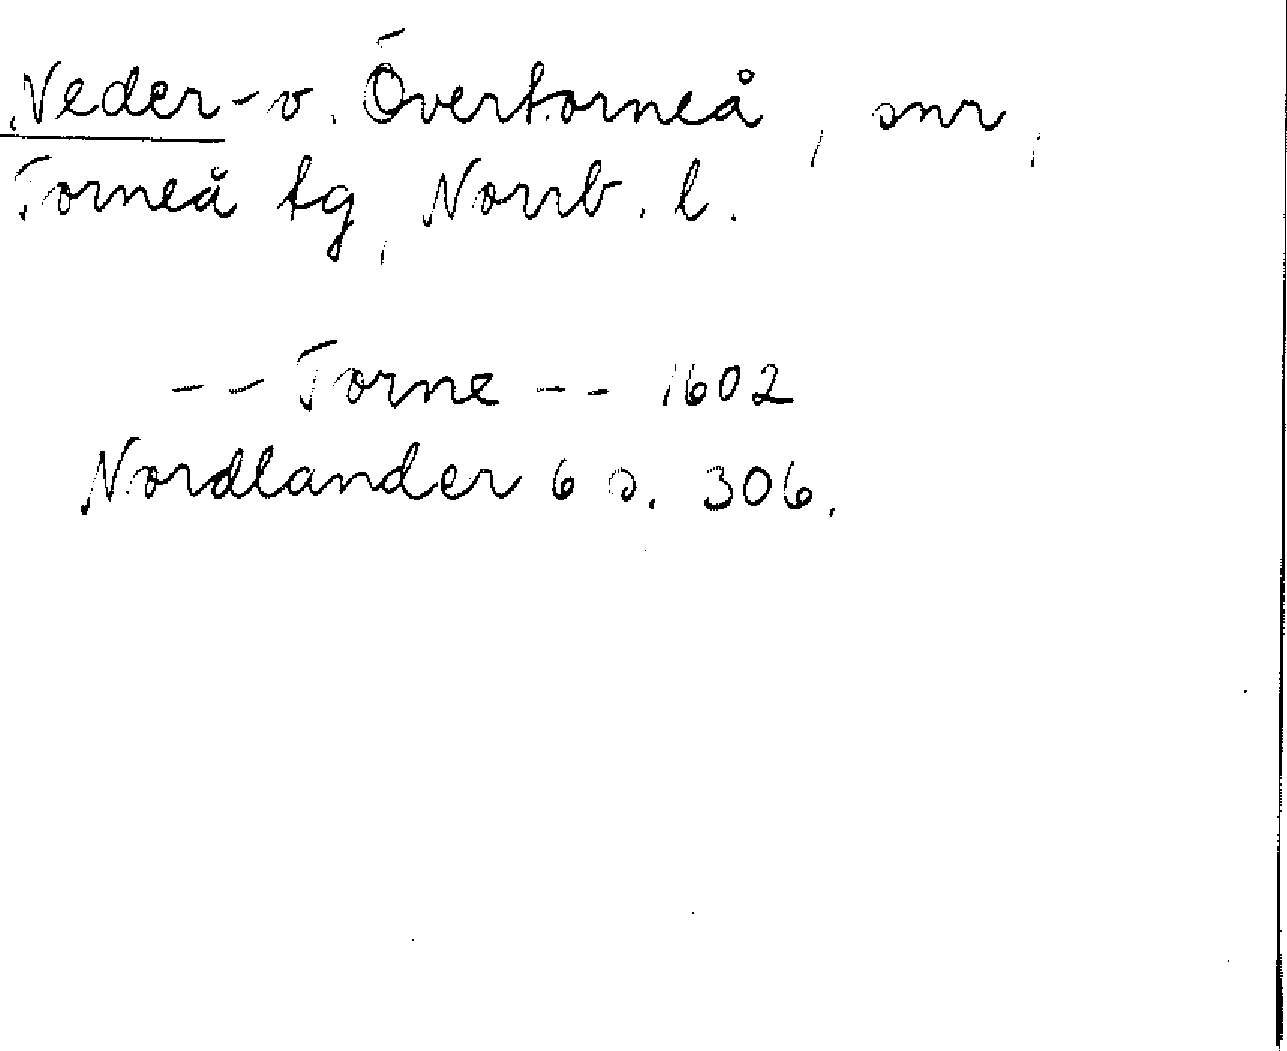 Neder- o. Övertorneå, snr,
Torneå tg, Norrb. l.
-- Torne -- 1602
Nordlander 6 s. 306.